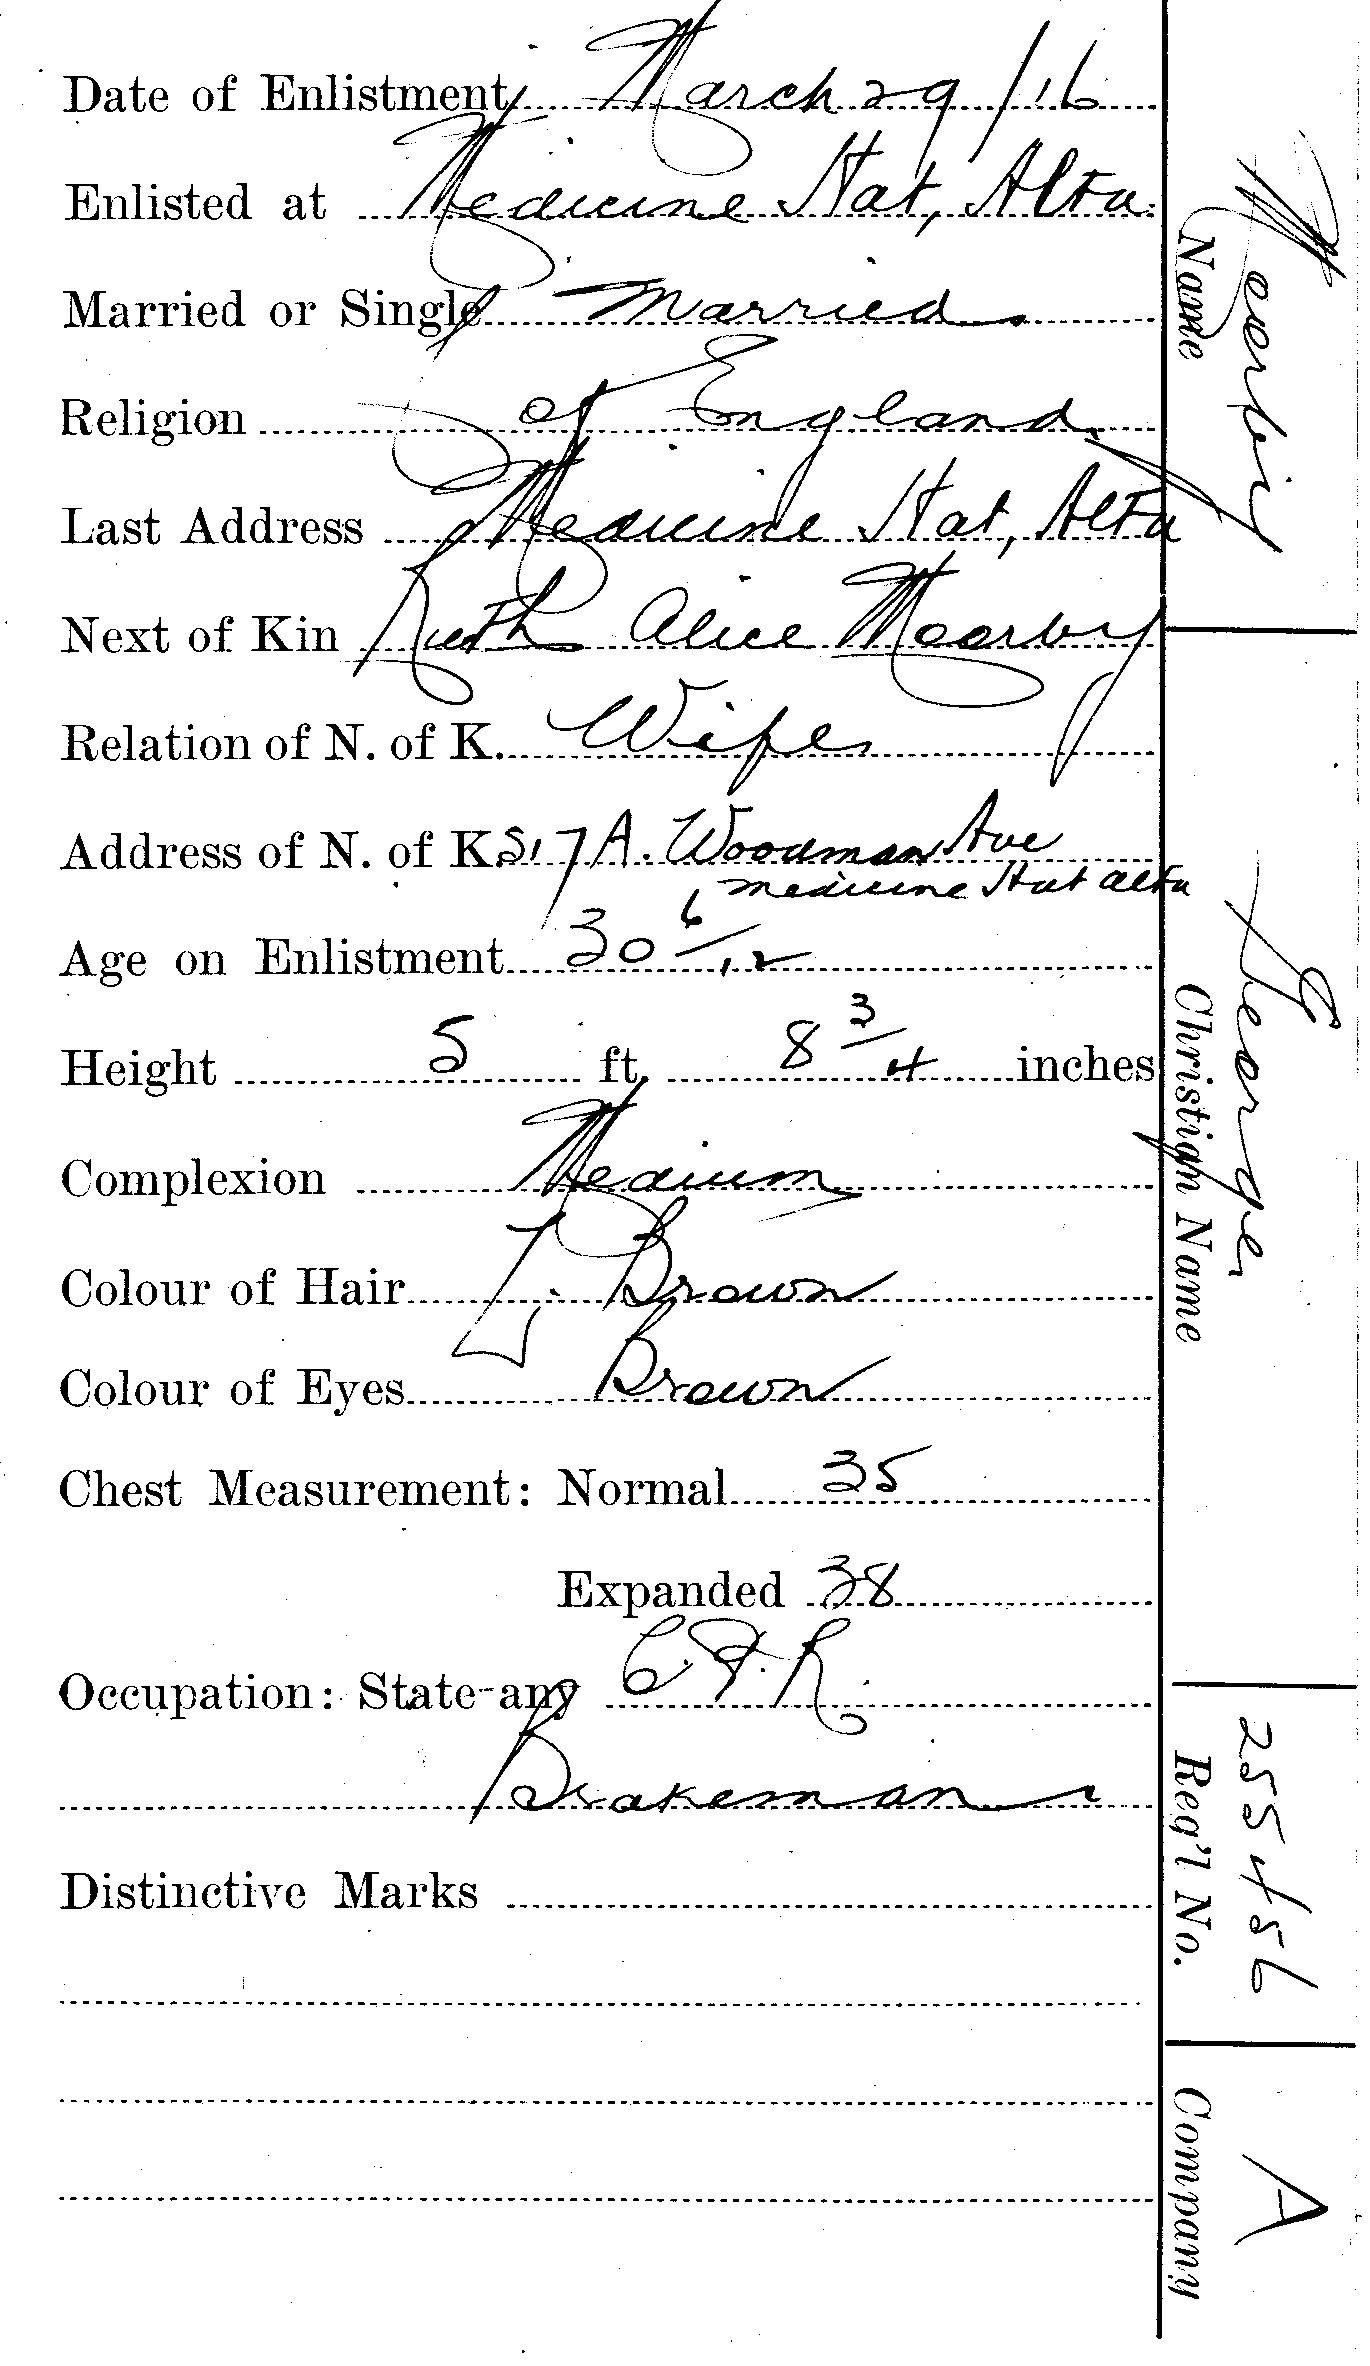 Date of Enlistment March 29/16
Enlisted at Medicine Hat, Alta.
Married or Single Married
Religion of England
Last Address Medicine Hat, Alta
Next of Kin Ruth Alice Moorby
Relation of N. of K. Wife
Address of N. of K. 517 A. Woodman Ave
Medicine Hat Alta
Age on Enlistment 30 6/12
Height 5 ft. 8 3/4 inches
Complexion Medium
Colour of Hair L. Brown
Colour of Eyes Brown
Chest Measurement: Normal 35
Expanded 38
Occupation: State any C.P.R.
Brakeman
Distinctive Marks
Moorby
Name
George
Christian Name
255456
Reg'l No.
A
Company